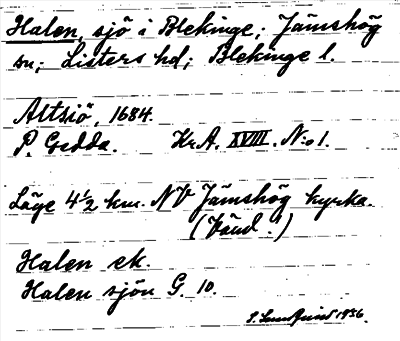 Halen, sjö i Blekinge; Jämshög
sn; Listers hd; Blekinge l.
Altsiö, 1684.
P. Gedda. KrA. XVIII. N:o 1.
Läge 4½ km. NV Jämshög kyrka.
(Vänd.)
Halen ek.
Halen sjön G. 10.
1936.